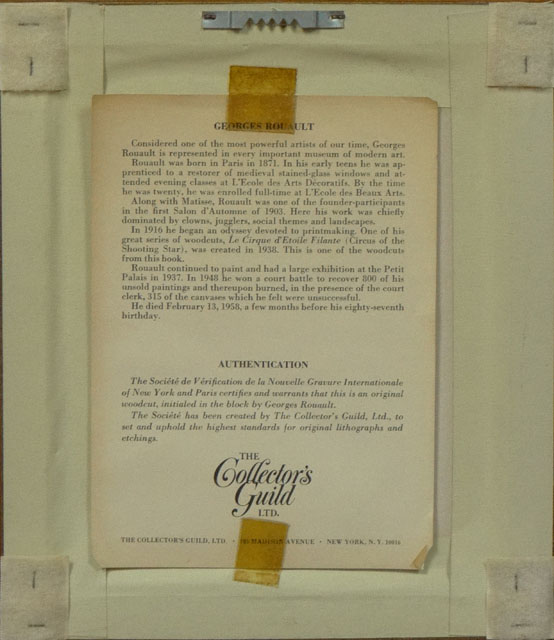 GEORGES ROUAULT
Considered one of the most powerful artists of our time, Georges
Rouault is represented in every important museum of modern art.
Rouault was born in Paris in 1871. In his early teens he was ap-
prenticed to a restorer of medieval stained-glass windows and at-
tended evening classes at L'Ecole des Arts Décoratifs. By the time
he was twenty, he was enrolled full-time at L'Ecole des Beaux Arts.
Along with Matisse, Rouault was one of the founder-participants
in the first Salon d'Automne of 1903. Here his work was chiefly
dominated by clowns, jugglers, social themes and landscapes.
In 1916 he began an odyssey devoted to printmaking. One of his
great series of woodcuts, Le Cirque d'Etoile Filante (Circus of the
Shooting Star), was created in 1938. This is one of the woodcuts
from this book.
Rouault continued to paint and had a large exhibition at the Petit
Palais in 1937. In 1948 he won a court battle to recover 800 of his
unsold paintings and thereupon burned, in the presence of the court
clerk, 315 of the canvases which he felt were unsuccessful.
He died February 13, 1958, a few months before his eighty-seventh
birthday.
AUTHENTICATION
The Société de Vérification de la Nouvelle Gravure Internationale
of New York and Paris certifies and warrants that this is an original
woodcut, initialed in the block by Georges Rouault.
The Société has been created by The Collector's Guild, Ltd., to
set and uphold the highest standards for original lithographs and
etchings.
THE
Collector's
Guild
LTD.
THE COLLECTOR'S GUILD, LTD. • MADISON AVENUE • NEW YORK, N.Y. 10016